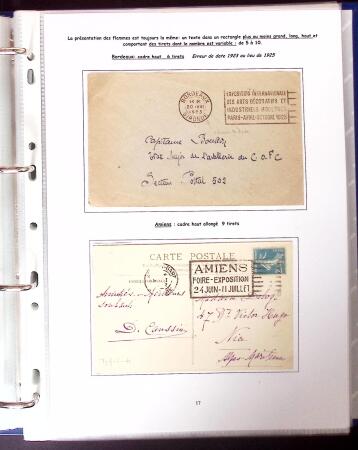 La présentation des flammes est toujours la même: un texte dans un rectangle plus au moins grand, long, haut et
comportant des tirets dont le nombre est variable : de 5 à 10.
Bordeaux: cadre haut 6 tirets Erreur de date 1923 au lieu de 1925
BORDEAUX
1923
GIRONDE
EXPOSITION INTERNATIONALE
DES ARTS DÉCORATIFS ET
INDUSTRIELS MODERNES
PARIS-AVRIL-OCTOBRE 1925
Capitaine
Etat Major de l'artillerie du C.O.F.C
Secteur Postal 502
Amiens : cadre haut allongé 9 tirets
CARTE POSTALE
AMIENS
FOIRE-EXPOSITION
24 JUIN-11 JUILLET
47 Bd Victor Hugo
Nice
Alpes Maritimes
17